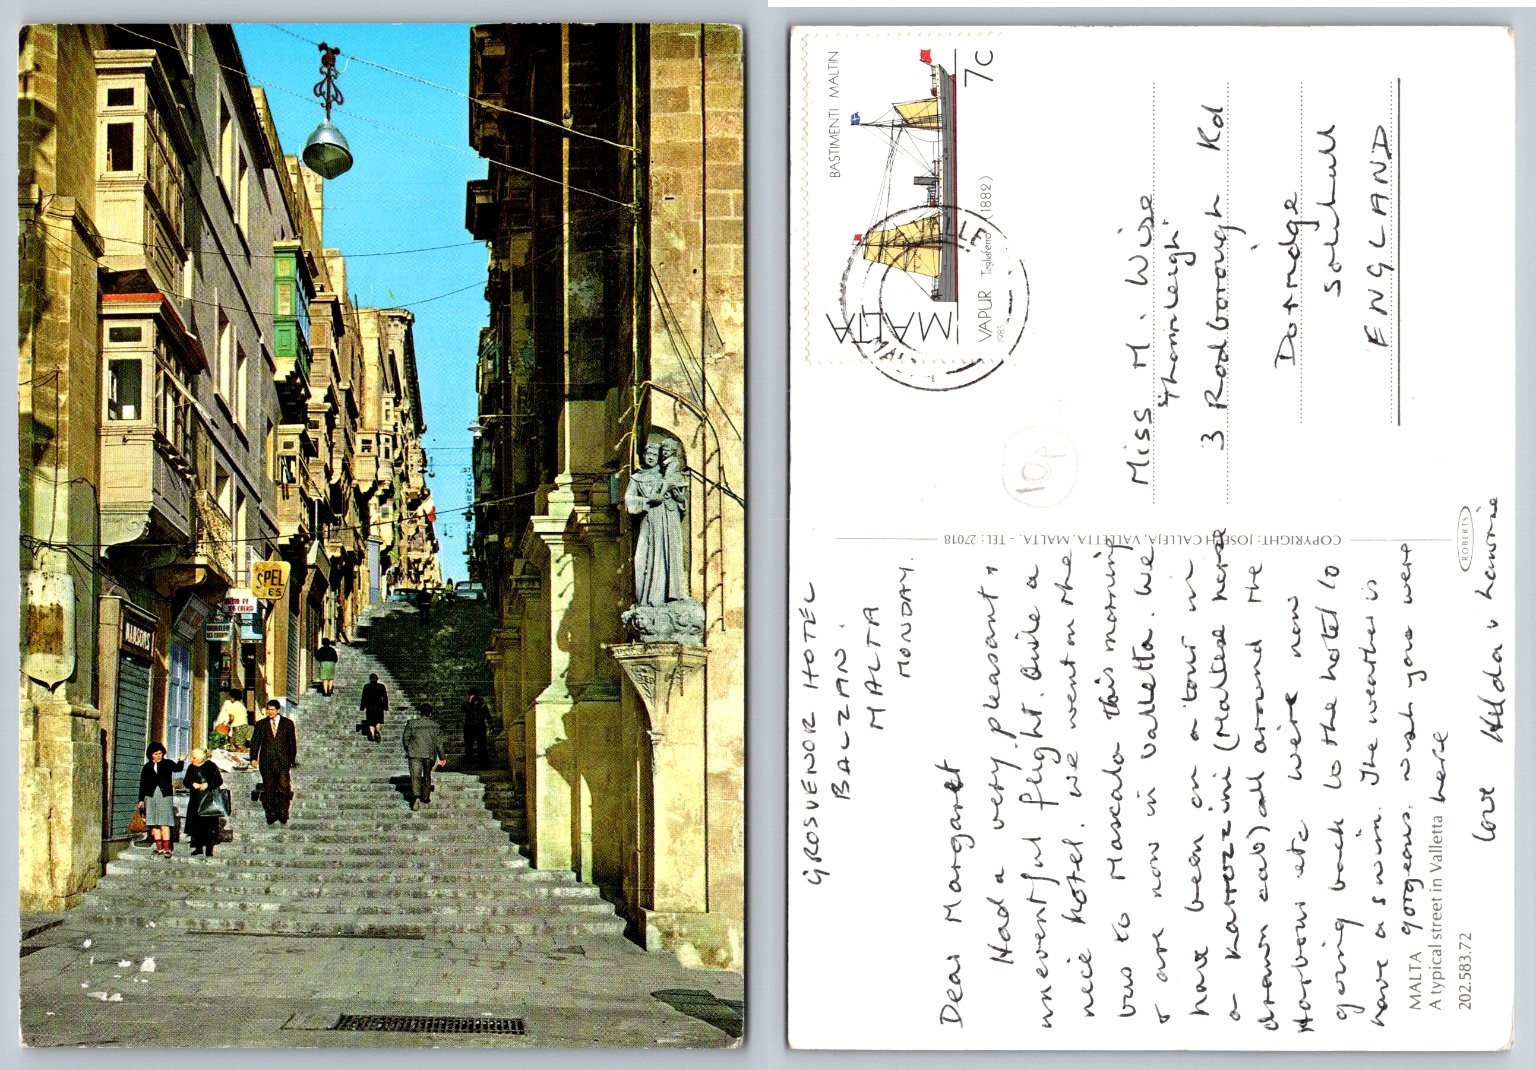 MARISOL'S
SPEL
GROSVENOR HOTEL
BALZAN.
MALTA
MONDAY.
Dear Margaret
Had a very pleasant &
uneventful flight. Quite a
nice hotel. We went on the
bus to Mascala this morning
& are now in Valletta. We
have been on a tour in
a Karozzini (Maltese horse
drawn cab) all around the
Harbours etc. We're now
going back to the hotel to
have a swim. The weather is
gorgeous. Wish you were
here
love Hilda &
MALTA
A typical street in Valletta
202.583.72
COPYRIGHT: JOSEPH CALLEJA, VALLETTA, MALTA. - TEL: 27018
ROBERTS
BASTIMENTI MALTIN
7c
MALTA
VAPUR Tagliaferro (1882)
1985
10p
Miss M. Wise
"Thornleigh"
3 Rodborough Rd
Dorridge
Solihull
ENGLAND